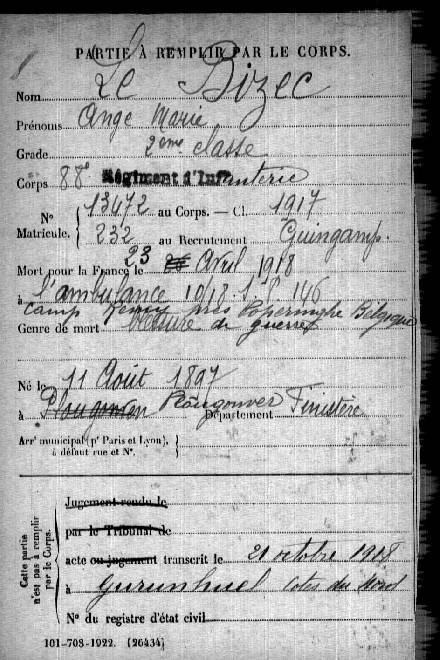 PARTIE À REMPLIR PAR LE CORPS.
Nom Le Bizec
Prénoms Ange Marie
Grade 2ème classe
Corps 88e Régiment d'Infanterie
N° Matricule. { 13472 au Corps. — Cl. 1917
232 au Recrutement Guingamp.
Mort pour la France le 23 Avril 1918
à l'ambulance 10/18 146
Camp près Poperinghe Belgique
Genre de mort blessure de guerre
Né le 11 Août 1897
à Plougonven Plougonver Département Finistère
Arr' municipal (p' Paris et Lyon), à défaut rue et N°. }
Cette partie n'est pas à remplir par le Corps. {
Jugement rendu le
par le Tribunal de
acte ou jugement transcrit le 21 octobre 1918
à Gurunhuel Côtes du Nord
N° du registre d'état civil
101-708-1922. [26434]